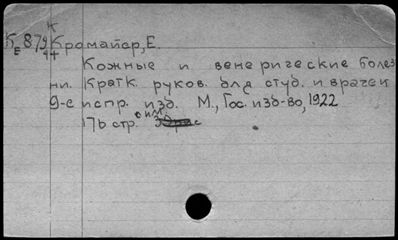 К 879 Кромайер, Е.
Е
Кожные и венерические болез
ни. Кратк. руков. для студ. и врачей
9-е испр. изд. М., Гос. изд-во, 1922
176 стр. с илл.